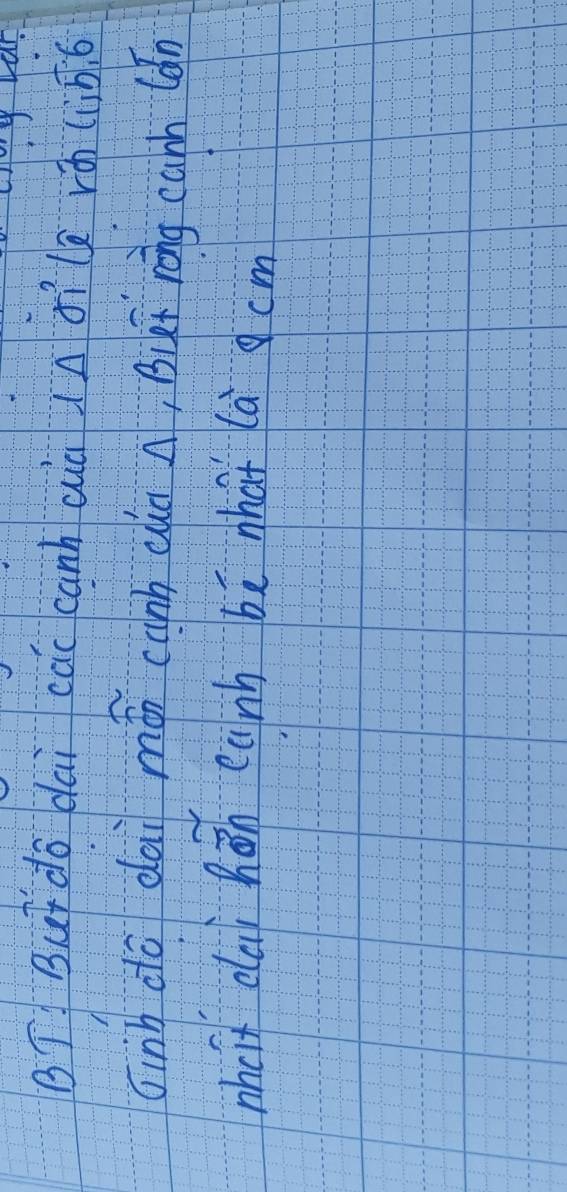 BT: Biết độ dài các cạnh của 1 Δ tỉ lệ với 4;5;6
Tính độ dài mỗi cạnh của Δ, Biết rằng cạnh lớn
nhất dài hơn cạnh bé nhất là 8 cm